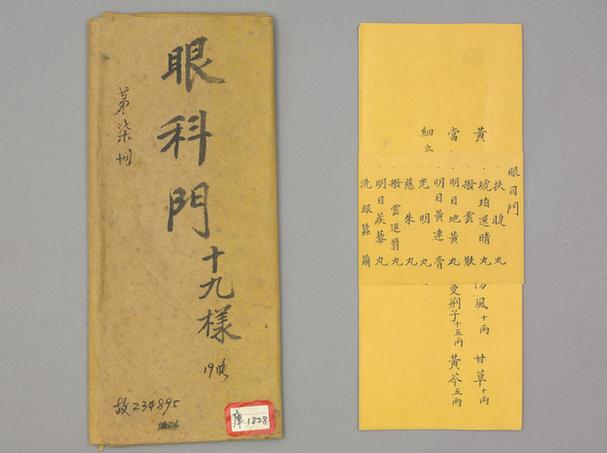 眼科門十九樣
苐柒冊
故234895
庫1828
黃
當
細
眼目門
琥珀還睛丸
撥雲散
明目地黃丸
明目黃連膏
光明丸
慈朱丸
撥雲退翳丸
明目蒺藜丸
洗眼蠶繭
甘草十兩
風十兩
黃芩五兩
荊子十五兩